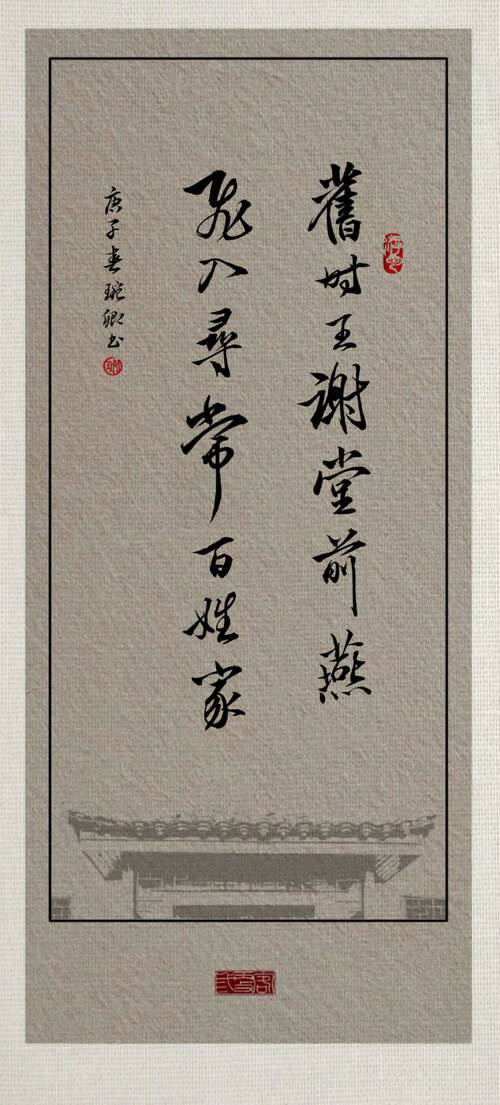 舊时王謝堂前燕
飛入尋常百姓家
庚子春琬卿书